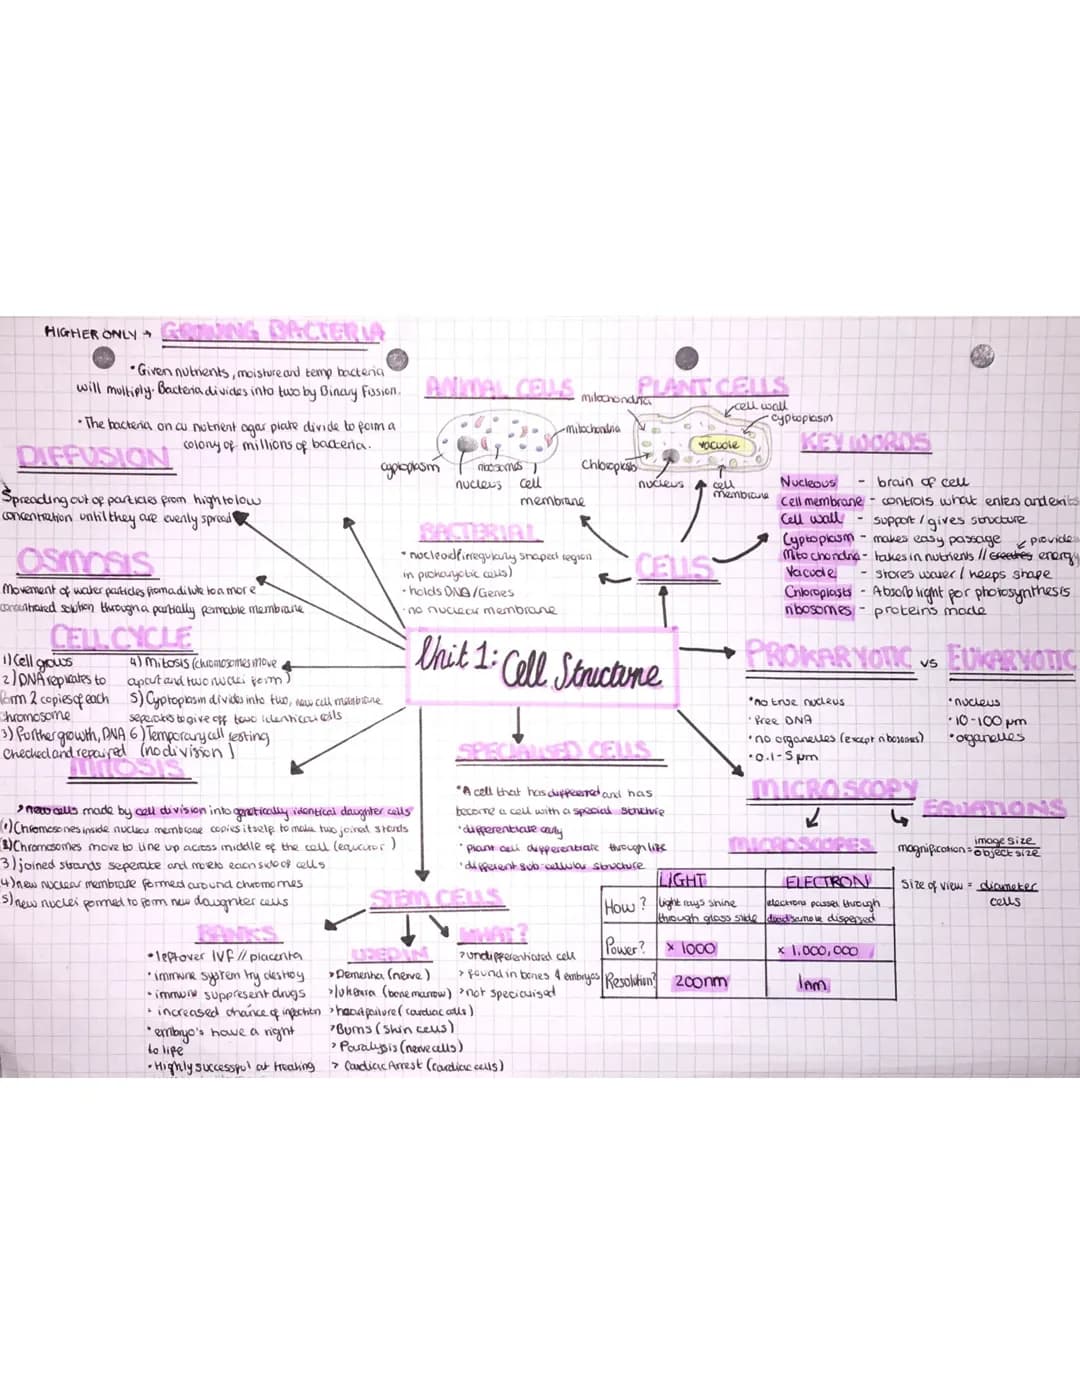 HIGHER ONLY → GROWING BACTERIA
• Given nutrients, moisture and temp bacteria
will multiply. Bacteria divides into two by Binary Fission.
• The bacteria on an nutrient agar plate divide to form a
colony of millions of bacteria.
DIFFUSION
Spreading out of particles from high to low
concentration until they are evenly spread
OSMOSIS
Movement of water particles from a dilute to a more
concentrated solution through a partially permable membrane
CELL CYCLE
1) Cell grows
2) DNA replicates to
form 2 copies of each
chromosome
3) Further growth, DNA
checked and repaired
4) Mitosis (chromosomes move
apart and two nuclei form)
5) Cyptoplasm divides into two, new cell membrane
seperates to give off two identical cells
6) Temporary cell resting
(no division)
MITOSIS
> new cells made by cell division into genetically identical daughter cells
1) Chromosones inside nuclear membrane copies itself to make two joined strands
2) Chromosomes move to line up across middle of the cell (equator)
3) joined strands seperate and move to each side of cells
4) new nuclear membrane formed around chromomes
5) new nuclei formed to form new daughter cells
ANIMAL CELLS
mitochondria
cyptoplasm
ribosomes
nucleus
cell
membrane
PLANT CELLS
mitochondria
cell wall
cyptoplasm
vacuole
Chloroplasts
nucleus
cell
membrane
BACTERIAL
• nucleoid (irregularly shaped region
in prokaryotic cells)
• holds DNA/Genes
• no nuclear membrane
CELLS
KEY WORDS
Nucleous - brain of cell
Cell membrane - controls what enters and exits
Cell wall - support / gives structure
Cyptoplasm - makes easy passage
provides
Mitochondria - takes in nutrients // creates energy
Vacuole - stores water / keeps shape
Chloroplasts - Absorb light for photosynthesis
ribosomes - proteins made
Unit 1: Cell Structure
PROKARYOTIC vs EUKARYOTIC
• no true nucleus
• Free DNA
• no organelles (except ribosomes)
• 0.1-5 µm
• nucleus
• 10-100 µm
• organelles
SPECIALISED CELLS
• A cell that has differed and has
become a cell with a special structure
• differentiate early
• plant cell differentiate through life
• different sub-cellular structure
MICROSCOPY
MICROSCOPES
LIGHT ELECTRON
How? light rays shine
through glass slide
electrons passed through
dead sample dispersed
Power? x 1000 x 1,000,000
Resolution? 200nm 1nm
EQUATIONS
magnification = image size
object size
Size of view = diameter
cells
STEM CELLS
BANKS
• leftover IVF // placenta
• immune system try destroy
• immune suppresent drugs
• increased chance of infection
• embryo's have a right
to life
• Highly successful at treating
USED IN
> Dementia (nerve)
> lukemia (bone marrow)
> heart failure (cardiac cells)
> Burns (skin cells)
> Paralysis (nerve cells)
> Cardiac Arrest (cardiac cells)
WHAT?
> undifferentiated cell
> found in bones & embryos
> not specialised